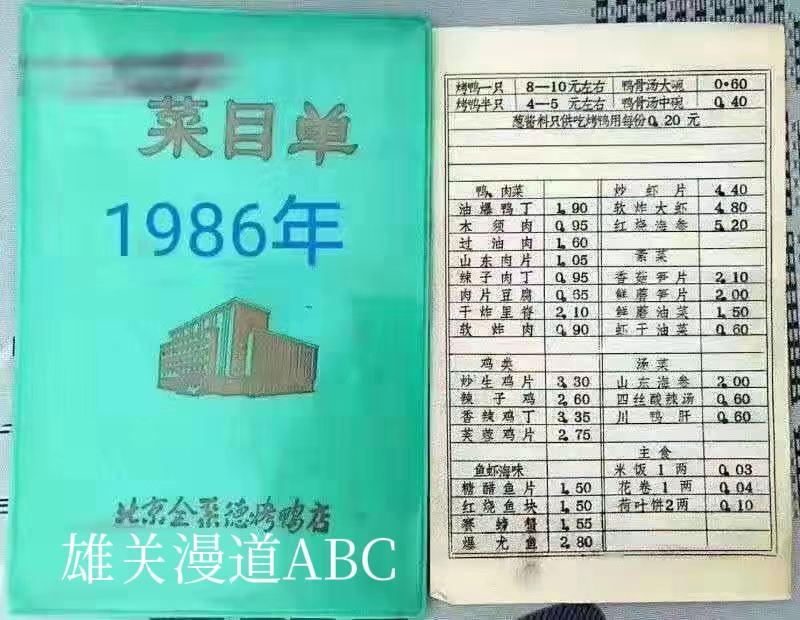 菜目单
1986年
北京全聚德烤鸭店
雄关漫道ABC
烤鸭一只 8—10元左右 鸭骨汤大碗 0.60
烤鸭半只 4—5 元左右 鸭骨汤中碗 0.40
葱酱料只供吃烤鸭用每份0.20 元
鸭、肉菜
油爆鸭丁 1.90
木须肉 0.95
过油肉 1.60
山东肉片 1.05
辣子肉丁 0.95
肉片豆腐 0.65
干炸里脊 2.10
软炸肉 0.90
鸡类
炒生鸡片 3.30
辣子鸡 2.60
香辣鸡丁 3.35
芙蓉鸡片 2.75
鱼虾海味
糖醋鱼片 1.50
红烧鱼块 1.50
赛螃蟹 1.55
爆尤鱼 2.80
炒虾片 4.40
软炸大虾 4.80
红烧海参 5.20
素菜
香菇笋片 2.10
鲜蘑笋片 2.00
鲜蘑油菜 1.50
虾干油菜 0.60
汤菜
山东海参 2.00
四丝酸辣汤 0.60
川鸭肝 0.60
主食
米饭1两 0.03
花卷1两 0.04
荷叶饼2两 0.10